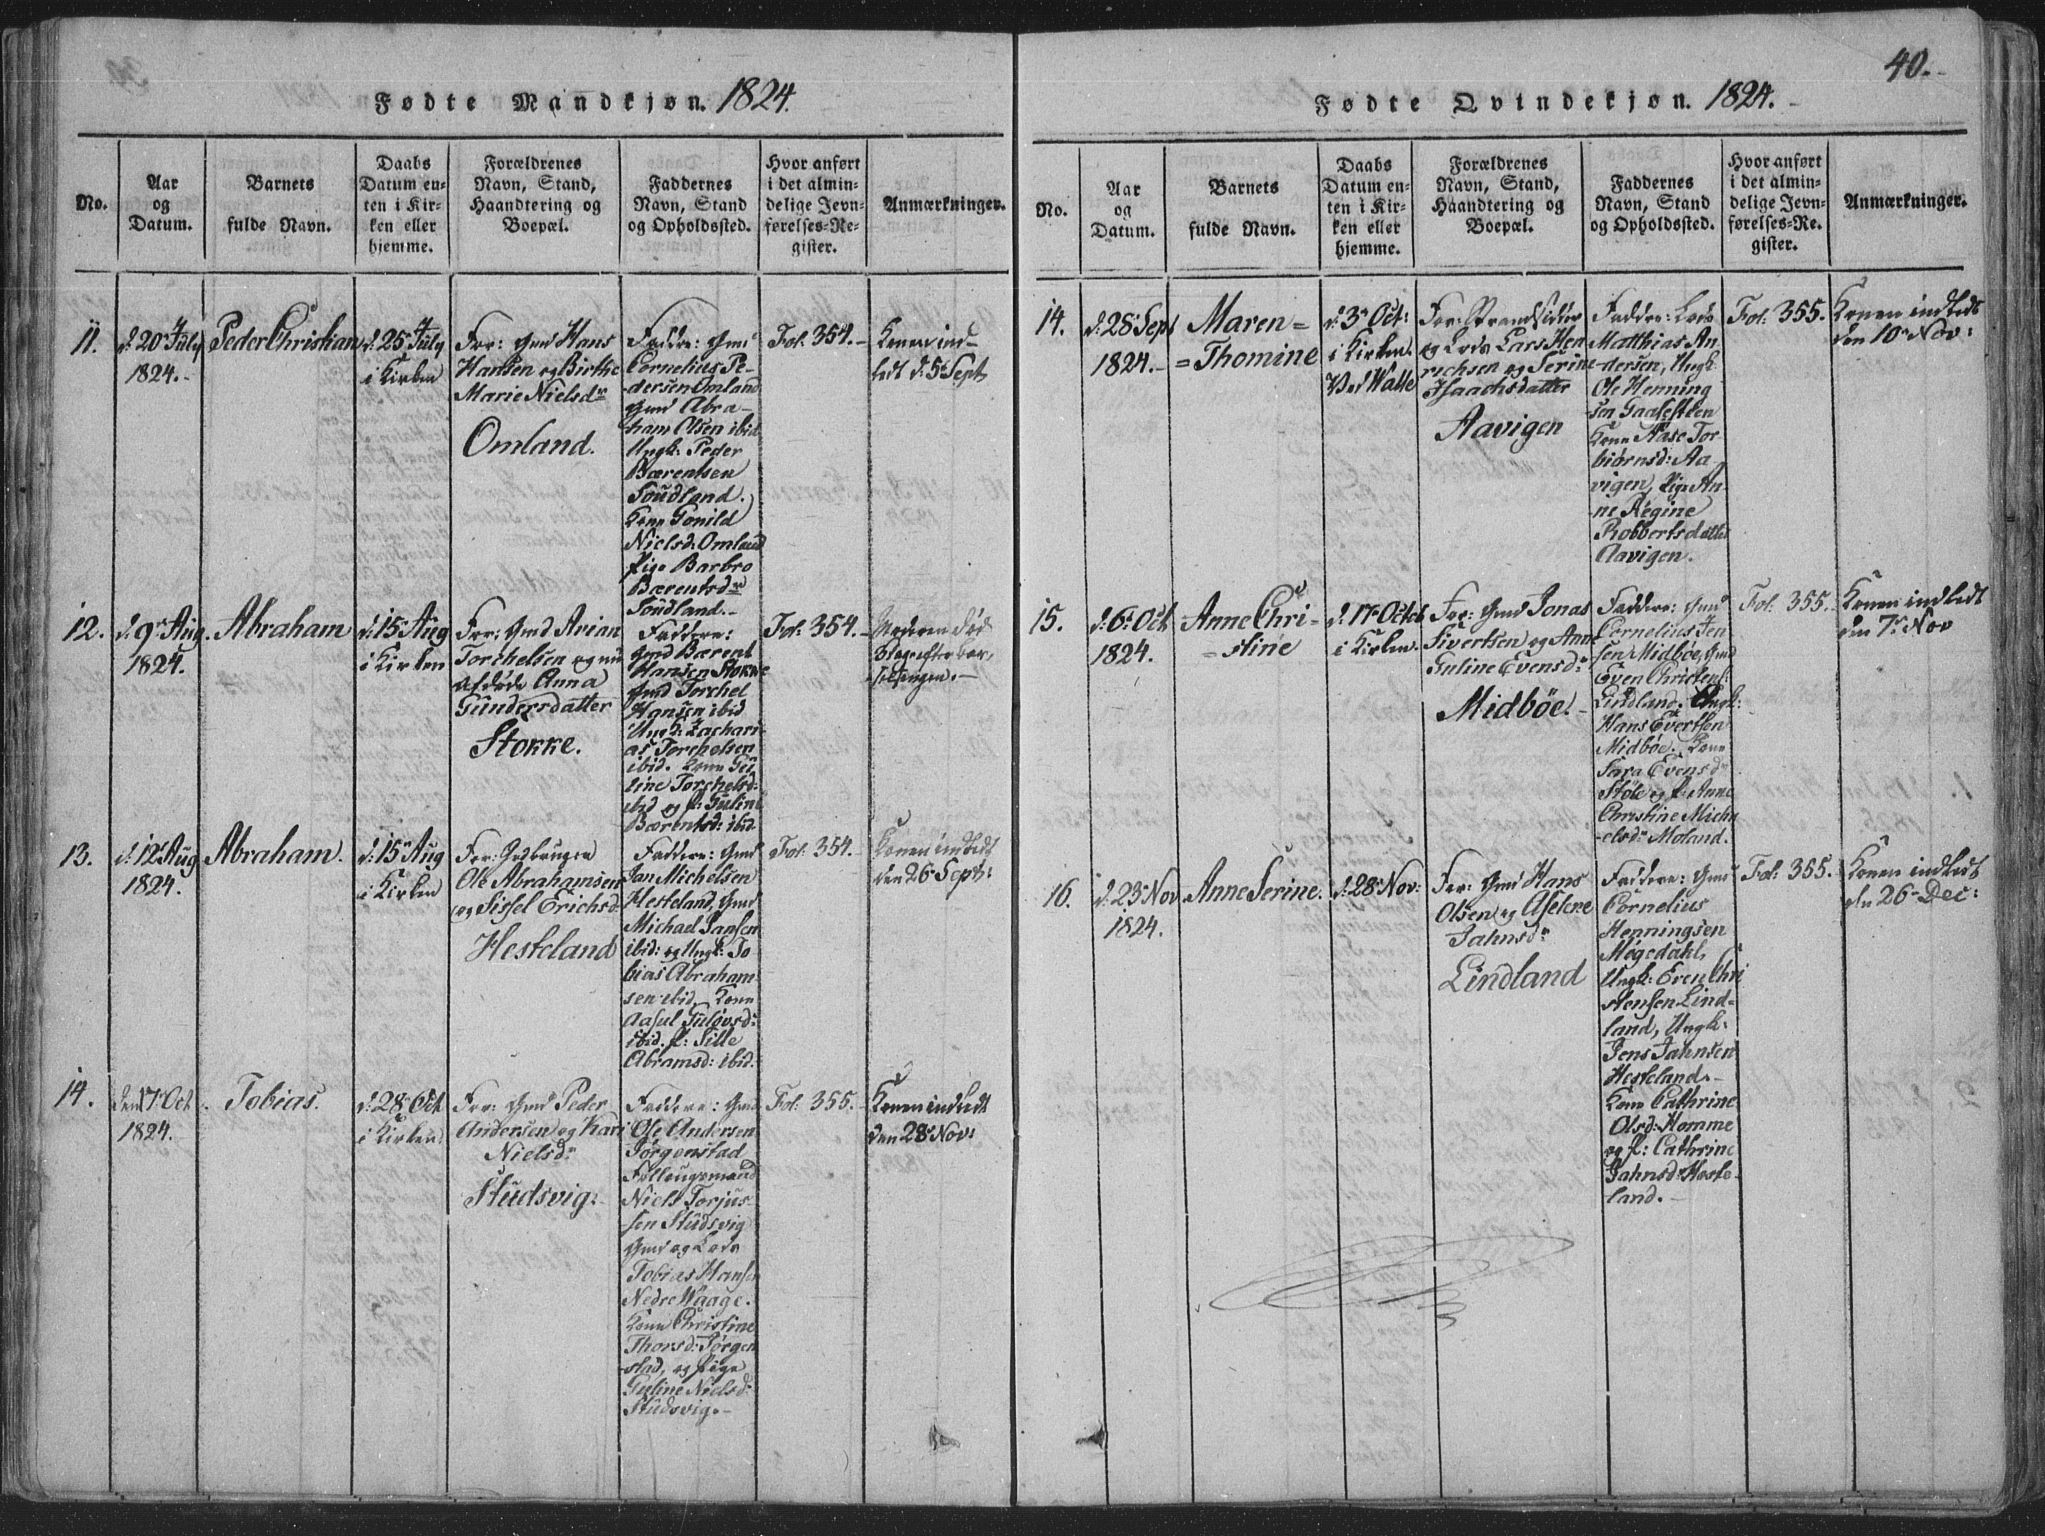 Fødte Mandkjøn. 1824.
No.
Aar
og
Datum.
Barnets
fulde Navn.
Daabs
Datum en-
ten i Kir-
ken eller
hjemme.
Forældrenes
Navn, Stand,
Haandtering og
Boepæl.
Faddernes
Navn, Stand
og Opholdssted.
Hvor anført
i det almin-
delige Jevn-
førelses-Re-
gister.
Anmærkninger.
11.
d: 20 July
1824.
Peder Christian
d: 25 July
i Kirken
For: Gmd Hans
Hansen og Birthe
Marie Nielsdr
Omland.
Faddre: Gmd
Cornelius Pe-
dersen Omland
Gmd Abra-
ham Olsen ibid
Ungk: Peder
Bærentsen
Soudland.
Kone Gonild
Nielsd: Omland
Pige Barbro
Bærentsdr
Soudland.
Fol: 354.
Konen ind-
ledt d: 5 Sept
12.
d: 9 Aug.
1824.
Abraham
d: 15 Aug
i Kirken
For: Gmd Arian
Torchelsen og nu
afdøde Anna
Gundersdatter
Stokke.
Faddere:
Gmd Bærent
Hansen Stokke
Gmd Torchel
Hansen ibid
Ungk: Zachari-
as Torchelsen
ibid. Kone
Torchelsd:
ibid og P: Guline
Bærentsd: ibid.
Fol: 354.
Moderen død
strax efter bar-
selsengen.
13.
d: 12 Aug
1824.
Abraham.
d: 15 Aug
i Kirken
For:
Ole Abrahamsen
og Sissel Erichsd:
Hesteland
Faddere: Gmd
Jan Michelsen
Hesteland, Gmd
Michael Jansen
ibid: og Ungk: To
bias Abraham
sen ibid. Kone
Aasul Tulovsd:
ibid. P: Sille
Abramsd: ibid:
Fol: 354.
Konen indledt
den 26 Sept:
14.
den 17 Oct
1824.
Tobias.
d: 28 Oct
i Kirken
For: Gmd Peder
Andersen og Kari
Nielsd:
Studsvig.
Faddere: Gmd
Ole Andersen
Jørgenstad
Føllaugsmand
Niels Torjus-
sen Studsvig
Gmd og Lods
Tobias Hansen
Nedre Waage.
Kone Christine
Thorsd: Jørgen
stad, og Pige
Guline Nielsd:
Studsvig.
Fol: 355.
Konen indledt
den 28 Nov:
40.
Fødte Qvindekjøn. 1824.
No.
Aar
og
Datum.
Barnets
fulde Navn.
Daabs
Datum en-
ten i Kir-
ken eller
hjemme.
Forældrenes
Navn, Stand,
Haandtering og
Boepæl.
Faddernes
Navn, Stand
og Opholdssted.
Hvor anført
i det almin-
delige Jevn-
førelses-Re-
gister.
Anmærkninger.
14.
d: 28 Sept
1824.
Maren =
= Thomine
d: 3 Oct:
i Kirken.
For: Strandsidder
og Lods Lars Hen
richsen og Serine
Isaachsdatter
Aavigen
Faddre: Lods
Matthias An-
dersen, Ungk:
Ole Henning
sen
Kone Aase Tor-
biørnsd: Aa
vigen, Pige An-
ne Regine
Robbertsdatter
Aavigen.
Fol: 355.
Konen indledt
den 10 Nov:
15.
d: 6 Oct
1824.
Anne Chri-
stine
d: 17 Octob
i Kirken.
For: Gmd Jonas
Sivertsen og Anne
Guline Evensd:
Midbøe.
Faddere: Gmd
Cornelius Jen
sen Midbøe, Gmd
Even Christens:
Lindland. Ungk:
Hans Evertsen
Midbøe. Kone
Sara Evensd:
Støle og P: Anne
Christine Mich
elsdr Moland.
Fol: 355.
Konen indledt
den 7 Nov
16.
d: 23 Nov
1824.
Anne Serine.
d: 28 Nov:
For: Gmd Hans
Olsen og Aselene
Jahnsd:
Lindland
Faddere: Gmd
Cornelius
Henningsen
Møgedahl,
Ungk: Even Chri
stensen Lind-
land, Ungk:
Jens Jahnsen
Hesteland.
Kone Cathrine
Olsd: Homme
og P: Cathrine
Jahnsd: Heste-
land.
Fol: 355.
Konen indledt
den 26 Dec: